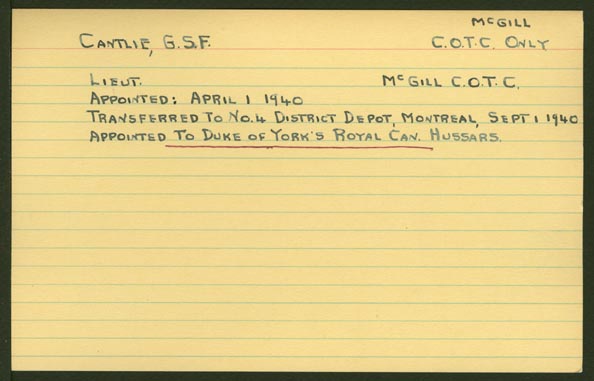 McGILL
CANTLIE, G.S.F. C.O.T.C. ONLY
LIEUT. McGILL C.O.T.C.
APPOINTED: APRIL 1 1940
TRANSFERRED TO NO.4 DISTRICT DEPOT, MONTREAL, SEPT 1 1940
APPOINTED TO DUKE OF YORK'S ROYAL CAN. HUSSARS.